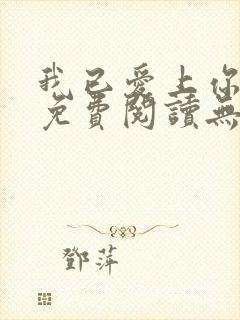 我已爱上你
免費閱讀無
鄧萍